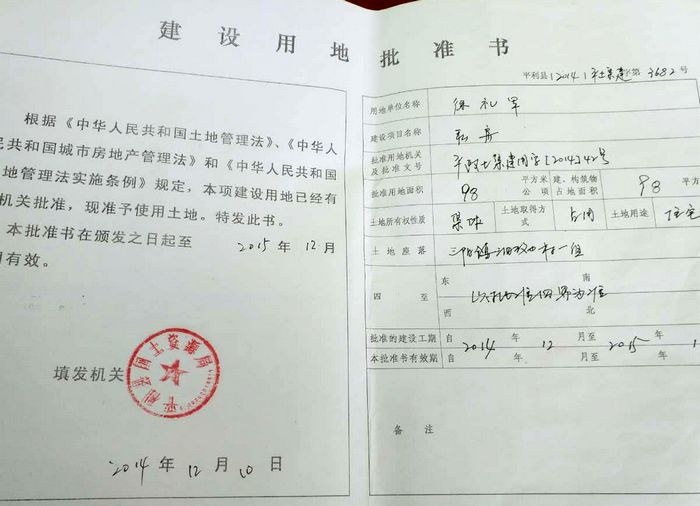 建设用地批准书
根据《中华人民共和国土地管理法》、《中华人
民共和国城市房地产管理法》和《中华人民共和国
地管理法实施条例》规定，本项建设用地已经有
机关批准，现准予使用土地。特发此书。
本批准书在颁发之日起至 2015 年 12 月
有效。
填发机关
平利县国土资源局
2014 年 12 月 10 日
平利县(2014)平土集建字第3682号
用地单位名称 徐礼军
建设项目名称
批准用地机关及批准文号 平政土集建用字[2014]42号
批准用地面积 98 平方米 公顷 建、构筑物占地面积 98 平方
土地所有权性质 集体 土地取得方式 占用 土地用途 住宅
土地座落 三阳镇 村一组
四至 东 南 西 北
以 四界为准
批准的建设工期 自 2014 年 12 月至 2015 年 1
本批准书有效期 自 年 月至 年
备注